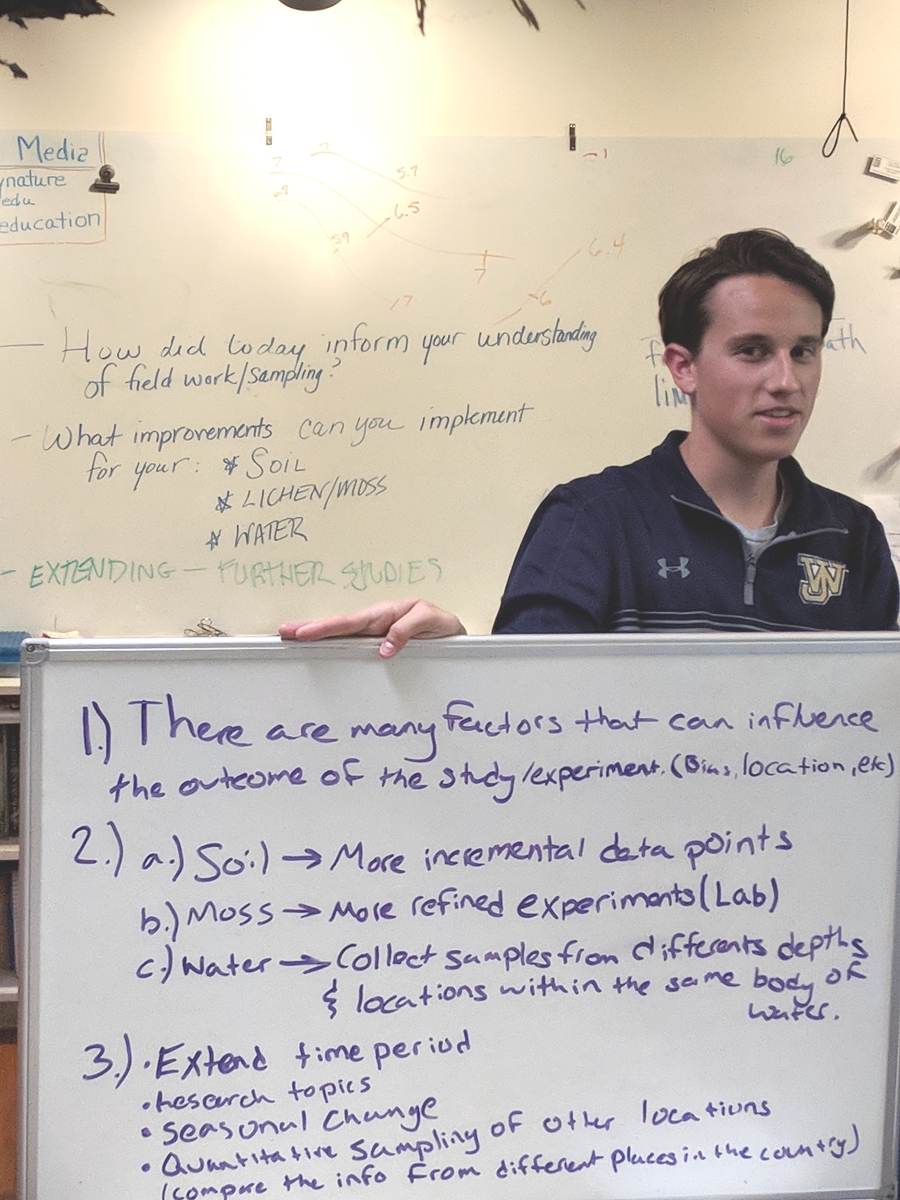 Media
ynature
edu
education
7
7
5.7
-1
16
6.9
6.5
5.9
6.4
7
6
.7
— How did today inform your understanding
of field work/sampling?
- What improvements can you implement
for your: * SOIL
* LICHEN/MOSS
* WATER
- EXTENDING — FURTHER STUDIES
ath
lim
WJ
1.) There are many factors that can influence
the outcome of the study/experiment. (Bias, location, etc)
2.) a.) Soil → More incremental data points
b.) Moss → More refined experiments (Lab)
c.) Water → Collect samples from differents depths
& locations within the same body of
water.
3.) • Extend time period
• Research topics
• Seasonal Change
• Quantitative Sampling of other locations
(compare the info from different places in the country)